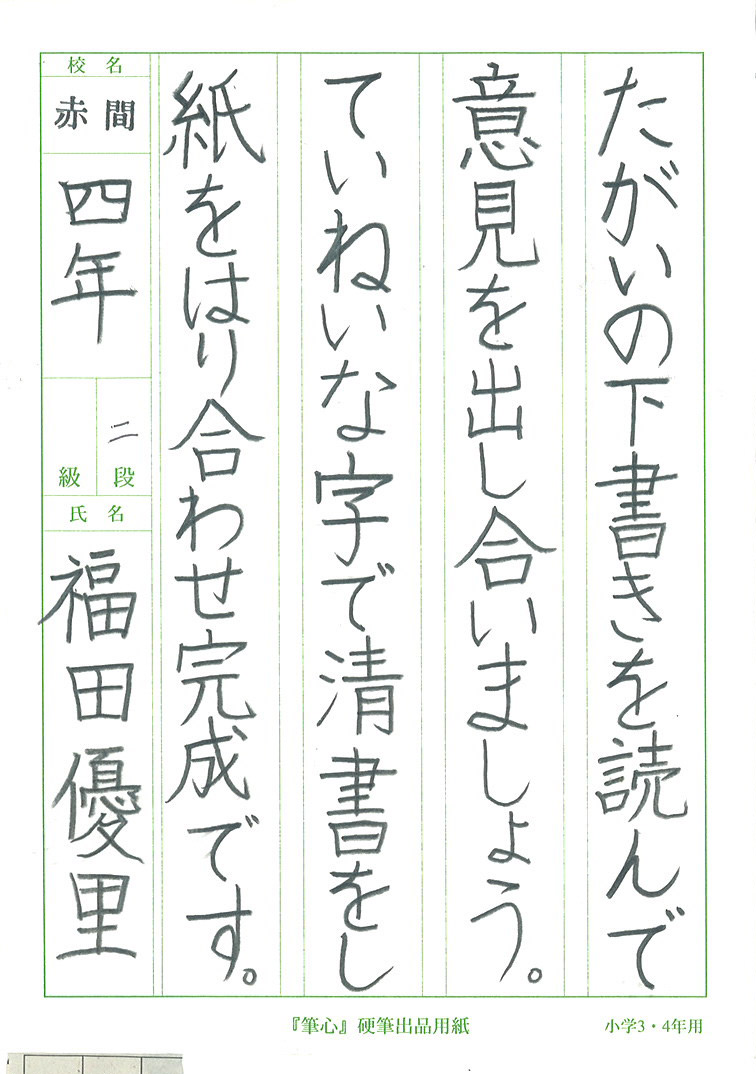 たがいの下書きを読んで
意見を出し合いましょう。
ていねいな字で清書をし
紙をはり合わせ完成です。
校名
赤間
四年
二
段
級
氏名
福田優里
『筆心』硬筆出品用紙
小学3・4年用